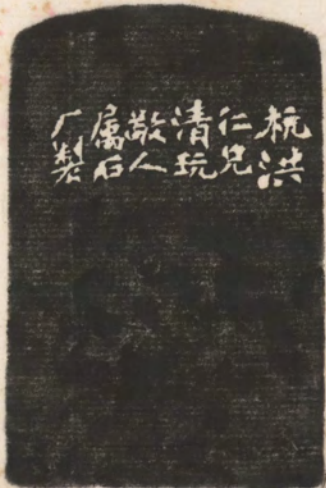 杭洪
仁兄
清玩
敬人
属石
厂製